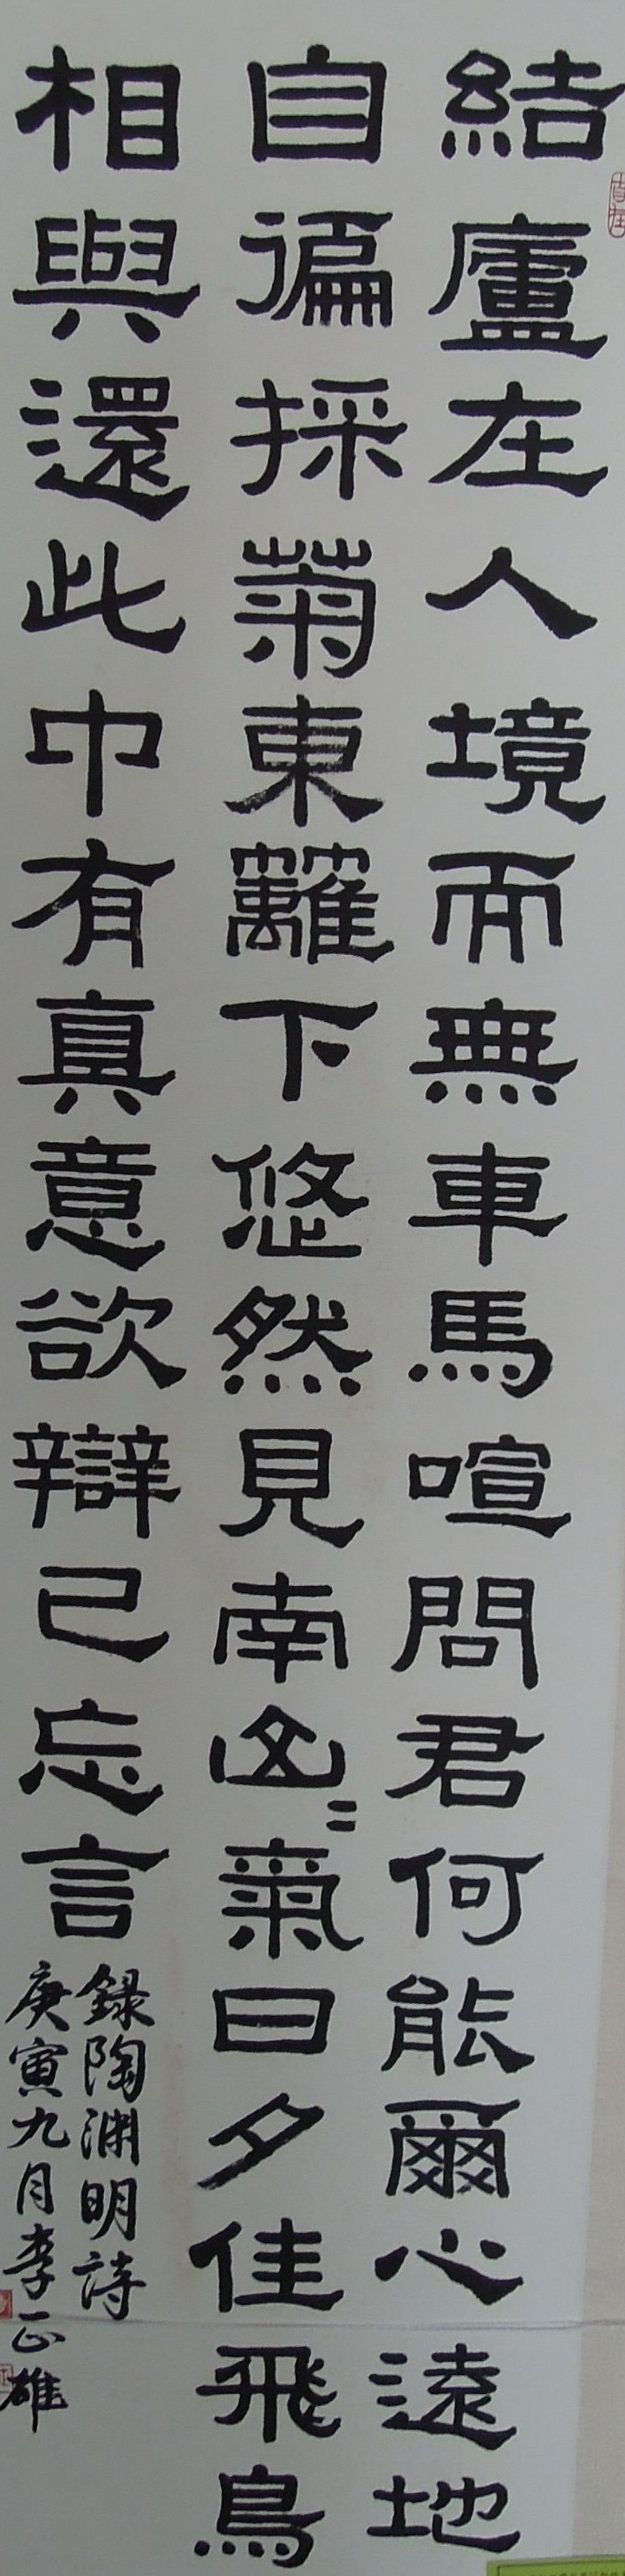 結廬在人境而無車馬喧問君何能爾心遠地
自徧採菊東籬下悠然見南山〻氣日夕佳飛鳥
相與還此中有真意欲辯已忘言
錄陶淵明詩
庚寅九月李正雄